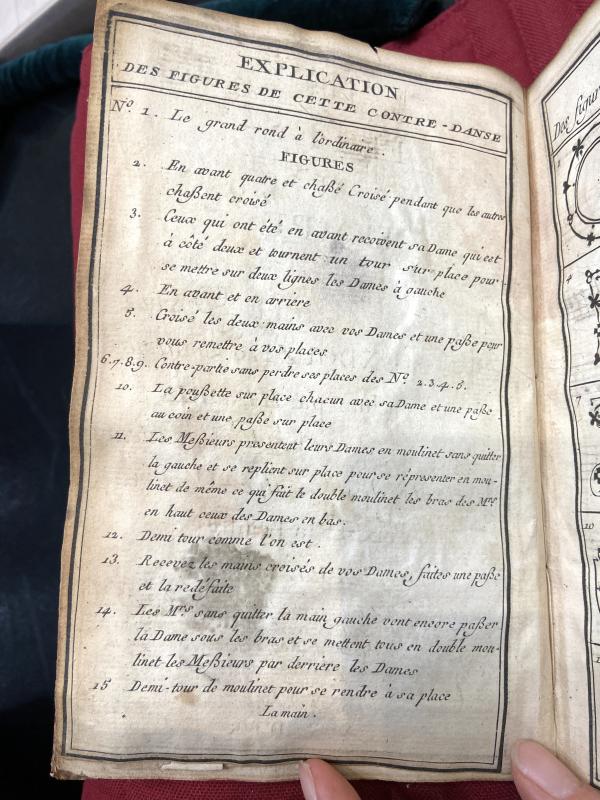 EXPLICATION
DES FIGURES DE CETTE CONTRE-DANSE
Nº 1. Le grand rond à l'ordinaire.
FIGURES
2. En avant quatre et chaßé Croisé pendant que les autres
chaßent croisé
3. Ceux qui ont été en avant recoivent sa Dame qui est
à côté deux et tournent un tour sur place pour
se mettre sur deux lignes les Dames à gauche
4. En avant et en arriere
5. Croisé les deux mains avec vos Dames et une paße pour
vous remettre à vos places
6.7.8.9. Contre-partie sans perdre ses places des Nº 2.3.4.5.
10. La poußette sur place chacun avec sa Dame et une paße
au coin et une paße sur place
11. Les Meßieurs presentent leurs Dames en moulinet sans quitter
la gauche et se replient sur place pour se répresenter en mou-
linet de même ce qui fait le double moulinet les bras des Mrs
en haut ceux des Dames en bas.
12. Demi tour comme l'on est.
13. Recevez les mains croisés de vos Dames, faites une paße
et la redéfaite
14. Les Mrs sans quitter la main gauche vont encore paßer
la Dame sous les bras et se mettent tous en double mou-
linet les Meßieurs par derriere les Dames
15 Demi-tour de moulinet pour se rendre à sa place
La main.
Des figur
4
7
10